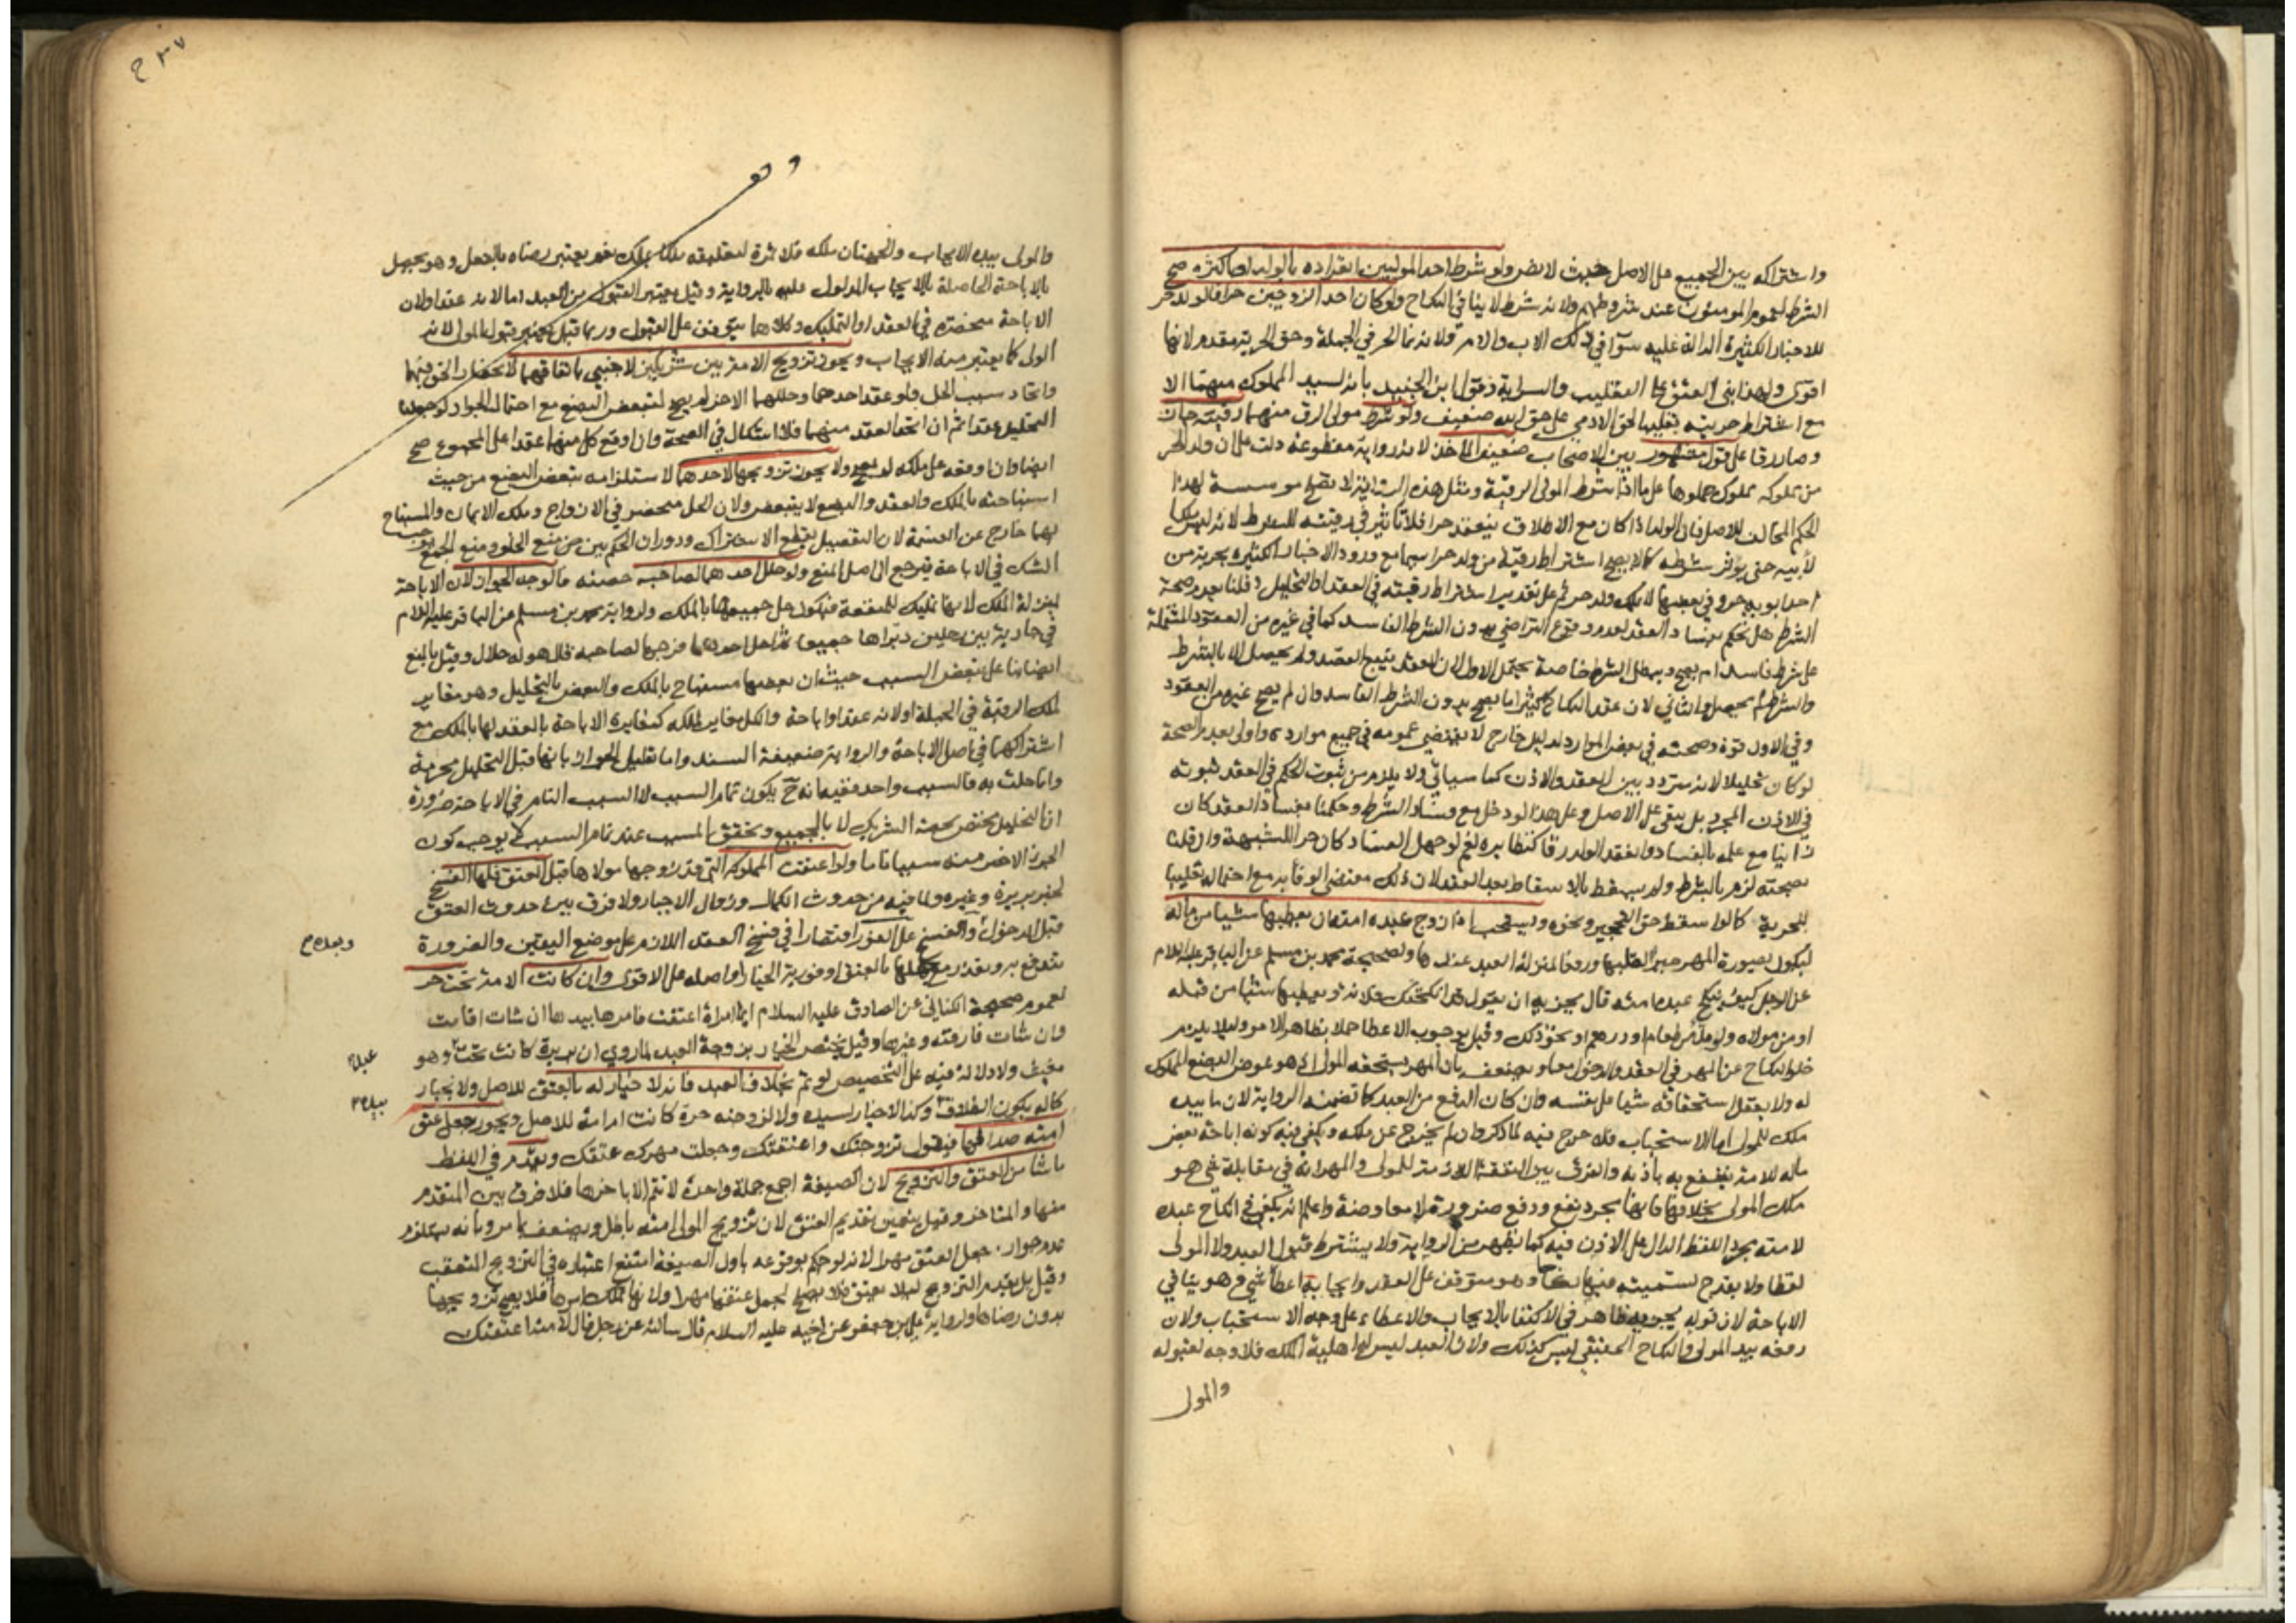 واشتراكه بين الجميع على الاصل حيث لا نص ولو شرط احد الموليين انفراده بالولد او باكثره صح
الشرط لعموم المومنون عند شروطهم ولانه شرط لا ينافي النكاح ولو كان احد الزوجين حرا فالولد حر
للاخبار الكثيرة الدالة عليه سوآ في ذلك الاب والام ولانه نما الحر في الجملة وحق الحرية مقدم لانها
اقوى ولهذا بنى العتق على التغليب والسراية وقول ابن الجنيد بانه لسيد المملوك منهما الا
مع اشتراط حريته تغليبا لحق الادمي على حق الله ضعيف ولو شرط مولى الرق منهما رقيته جاز
وصار رقا على قول مشهور بين الاصحاب ضعيف الماخذ لانه رواية مقطوعة دلت على ان ولد الحر
من مملوكه مملوك حملوها على ما اذا شرط المولى الرقية ومثل هذه الرواية لا تصلح موسسة لهذا
الحكم المخالف للاصل فان الولد اذا كان مع الاطلاق ينعقد حرا فلا تاثير في رقيته للشرط لانه ليس ملكا
لأبيه حتى يؤثر شرطه كما لا يصح اشتراط رقية من ولد حرا سيما مع ورود الاخبار الكثيرة بحرية من
احد ابويه حر وفي بعضها لا يملك ولد حر ثم على تقدير اشتراط رقيته في العقد او التحليل وقلنا بعدم صحة
الشرط هل يحكم بفساد العقد لعدم وقوع التراضي بدون الشرط الفاسد كما في غيره من العقود المشتملة
على شرط فاسد ام يصح ويبطل الشرط خاصة يحتمل الاول لان العقد يتبع القصد ولم يحصل الا بالشرط
والشرط لم يحصل والثاني لان عقد النكاح كثيرا ما يصح بدون الشرط الفاسد وان لم يصح غيره من العقود
وفي الاول قوة وصحته في بعض الموارد لدليل خارج لا يقتضي عمومه في جميع موارده واولى بعدم الصحة
لو كان تحليلا لانه متردد بين العقد والاذن كما سياتي ولا يلزم من ثبوت الحكم في العقد ثبوته
في الاذن المجرد بل يبقى على الاصل وعلى هذا لو دخل مع فساد الشرط وحكمنا بفساد العقد كان
زانيا مع علمه بالفساد وانعقد الولد رقا كنظايره نعم لو جهل الفساد كان حرا للشبهة وان قلنا
بصحته لزم بالشرط ولم يسقط بالاسقاط بعد العقد لان ذلك مقتضى الوفآ به مع احتماله تغليبا
للحرية كما لو اسقط حق التحجير ونحوه ويستحب اذا زوج عبده امته ان يعطيها شيئا من ماله
ليكون بصورة المهر جبرا لقلبها ورفعا لمنزلة العبد عندها ولصحيحة محمد بن مسلم عن الباقر عليه السلام
عن الرجل كيف ينكح عبده امته قال يجزيه ان يقول قد انكحتك فلانة ويعطيها شيئا من قبله
او من مولاه ولو مدا من طعام او درهم او نحو ذلك وقيل بوجوب الاعطا عملا بظاهر الامر ولئلا يلزم
خلو النكاح عن المهر في العقد والدخول معا ويضعف بان المهر يستحقه المولى اذ هو عوض البضع المملوك
له ولا يعقل استحقاقه شيئا على نفسه وان كان الدفع من العبد كما تضمنته الرواية لان ما بيده
ملك للمولى اما الاستحباب فلا حرج فيه لما ذكر وان لم يخرج عن ملكه ويكفي فيه كونه اباحة بعض
ماله للامة تنتفع به باذنه والفرق بين النفقة اللازمة للمولى والمهر انه في مقابلة شي هو
ملك المولى بخلافها فانها مجرد نفع ودفع ضرورة لا معاوضة واعلم انه يكفي في انكاح عبده
لامته مجرد اللفظ الدال على الاذن فيه كما يظهر من الرواية ولا يشترط قبول العبد ولا المولى
لفظا ولا يقدح تسميته فيها نكاحا وهو متوقف على العقد وايجابه اعطآ شي فهو ينافي
الاباحة لان قوله يجزيه ظاهر في الاكتفا بالايجاب والاعطاء على وجه الاستحباب ولان
رفعه بيد المولى والنكاح الحقيقي ليس كذلك ولان العبد ليس له اهلية الملك فلا وجه لقبوله
والمولى
والمولى بيده الايجاب والجهتان ملكه فلا ثمرة لتعليقه ملكا بملك نعم يعتبر رضاه بالفعل وهو يحصل
بالاباحة الحاصلة بالايجاب المدلول عليه بالرواية وقيل يعتبر القبول من العبد اما لانه عقد او لان
الاباحة منحصرة في العقد او التمليك وكلاهما يتوقف على القبول وربما قيل يعتبر قبول المولى لانه
الولي كما يعتبر منه الايجاب ويجوز تزويج الامة بين شريكين لاجنبي باتفاقهما لانحصار الحق فيهما
واتحاد سبب الحل ولو عقد احدهما وحللها الاخر لم يصح لتبعض البضع مع احتمال الجواز لو جعلنا
التحليل عقدا ثم ان اتحد العقد منهما فلا اشكال في الصحة وان اوقع كل منهما عقدا على المجموع صح
ايضا وان اوقعه على ملكه لم يصح ولا يجوز تزويجها لاحدهما لاستلزامه تبعض البضع من حيث
استباحته بالملك والعقد والبضع لا يتبعض ولان الحل منحصر في الازواج وملك الايمان والمستباح
بهما خارج عن القسمة لان التفصيل يقطع الاشتراك ودوران الحكم بين من منع الخلو ومنع الجمع يوجب
الشك في الاباحة فيرجع الى اصل المنع ولو حلل احدهما لصاحبه حصته فالوجه الجواز لان الاباحة
بمنزلة الملك لانها تمليك للمنفعة فيكون حل جميعها بالملك ولرواية محمد بن مسلم عن الباقر عليه السلام
في جارية بين رجلين دبراها جميعا ثم احل احدهما فرجها لصاحبه قال هو له حلال وقيل بالمنع
ايضا بنا على تبعض السبب حيث ان بعضها مستباح بالملك والبعض بالتحليل وهو مغاير
لملك الرقبة في الجملة او لانه عقد او اباحة والكل مغاير لملكه كمغايرة الاباحة بالعقد لها بالملك مع
اشتراكهما في اصل الاباحة والرواية ضعيفة السند واما تعليل الجواز بانها قبل التحليل محرمة
وانما حلت به فالسبب واحد ففيه انه ح يكون تمام السبب لا السبب التام في الاباحة ضرورة
ان التحليل مختص بحصة الشريك لا بالجميع وتحقق المسبب عند تمام السبب لا يوجب كون
الجزء الاخير منه سببا تاما ولو اعتقت المملوكة التي قد زوجها مولاها قبل العتق فلها الفسخ
لخبر بريرة وغيره ولما فيه من حدوث الكمال وزوال الاجبار ولا فرق بين حدوث العتق
قبل الدخول والفسخ على الفور اقتصارا في فسخ العقد اللازم على موضع اليقين والضرورة
وبعده ح
تندفع به وتعذر مع جهلها بالعتق او فورية الخيار او اصله على الاقوى وان كانت الامة تحت حر
لعموم صحيحة الكناني عن الصادق عليه السلام ايما امراة اعتقت فامرها بيدها ان شات اقامت
وان شات فارقته وغيرها وقيل يختص الخيار بزوجة العبد لما روي ان بريرة كانت تحت وهو
عبد
مغيث ولا دلالة فيه على التخصيص لو تم بخلاف العبد فانه لا خيار له بالعتق للاصل ولانجبار
بيده
كماله بكون الطلاق وكذا لاخيار لسيده ولا لزوجته حرة كانت ام امة للاصل ويجوز جعل عتق
امته صداقها فيقول تزوجتك واعتقتك وجعلت مهرك عتقك ويقدم في اللفظ
ما شا من العتق والتزويج لان الصيغة اجمع جملة واحدة لا تتم الا باخرها فلا فرق بين المتقدم
منها والمتاخر وقيل يتعين تقديم العتق لان تزويج المولى امته باطل ويضعف بما مر وبانه يستلزم
عدم جواز جعل العتق مهرا لانه لو حكم بوقوعه باول الصيغة امتنع اعتباره في التزويج المتعقب
وقيل بل يقدم التزويج لئلا تعتق فلا يصلح لجعل عتقها مهرا ولانها تملك امرها فلا يصح تزويجها
بدون رضاها ولرواية علي بن جعفر عن اخيه عليه السلام قال سالته عن رجل قال لامته اعتقتك